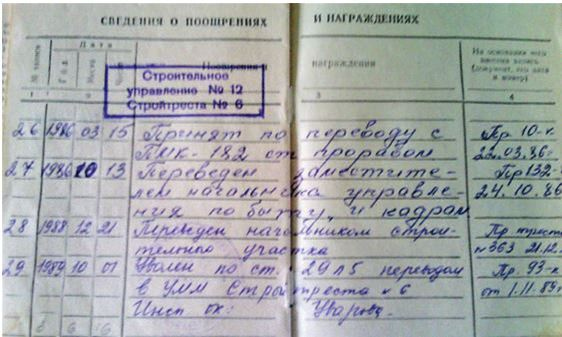 СВЕДЕНИЯ О ПООЩРЕНИЯХ И НАГРАЖДЕНИЯХ
№ записи Дата Поощрения и награждения На основании чего
Год внесена запись
(документ, его дата
и номер)
1 3 4
Строительное
управление № 12
Стройтреста № 6
26 1986 03 15 Принят по переводу с Пр 10-к
ПМК-182 ст. прорабом 22.03.86г
27 1986 10 13 Переведен заместите- Пр132-
лем начальника управле- 24.10.86
ния по быту и кадрам
28 1988 12 21 Переведен начальником строи- Пр трест
тельного участка №363 21.12
29 1989 10 01 Уволен по ст. 29 п5 переводом Пр. 93-к
в УММ Стройтреста №6 от 1.11.89г
Инсп ок: Уварова